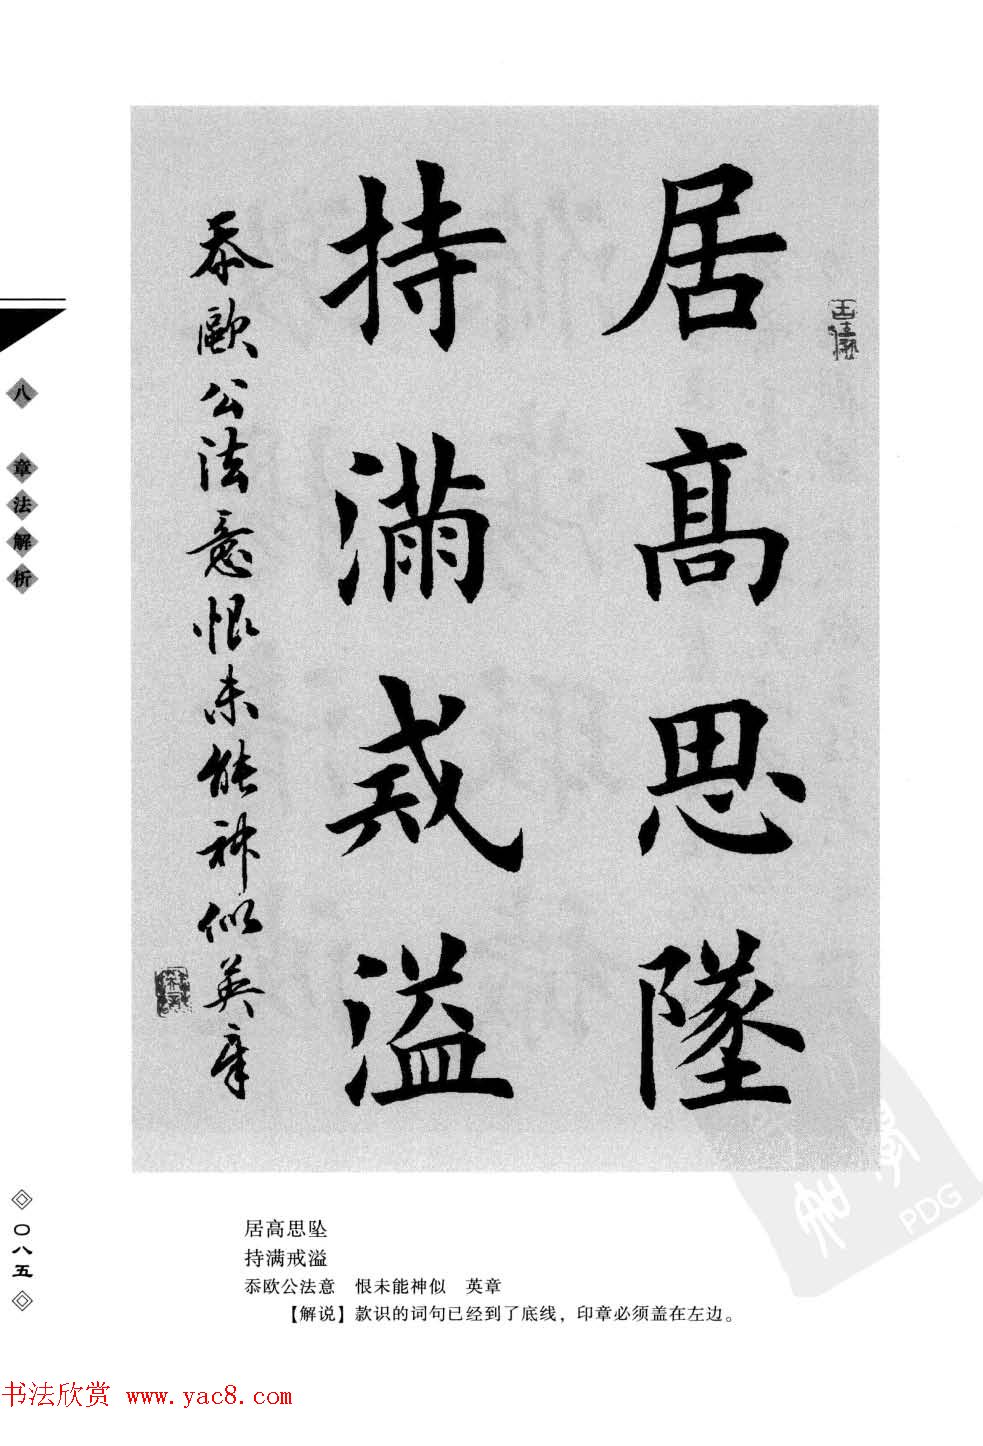 居高思墜
持滿戒溢
忝歐公法意恨未能神似英章
八 章法解析
〇八五
居高思坠
持满戒溢
忝欧公法意 恨未能神似 英章
【解说】款识的词句已经到了底线，印章必须盖在左边。
PDG
书法欣赏 www.yac8.com